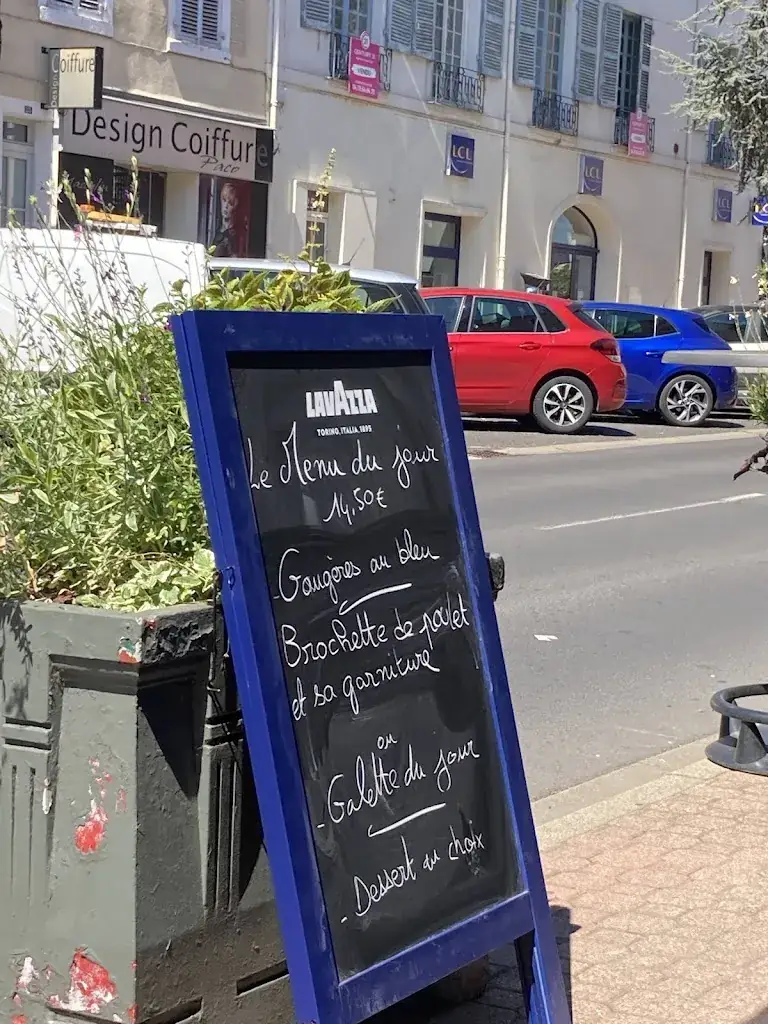 Coiffure
Design Coiffure
Paco
LCL
LCL
LCL
LAVAZZA
TORINO, ITALIA, 1895
Le Menu du jour
14,50€
- Gougères au bleu
Brochette de poulet
et sa garniture
ou
- Galette du jour
- Dessert au choix